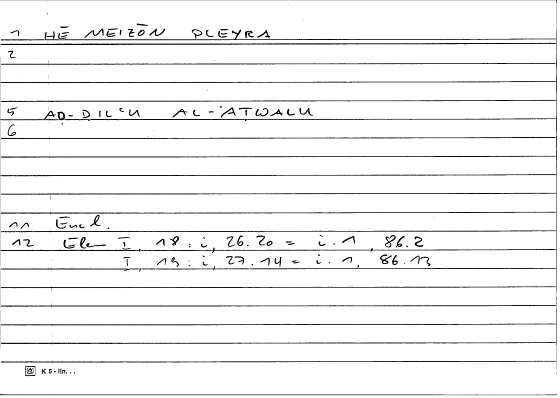 1 HĒ MEIZŌN PLEYRA
2
5 AḌ-ḌILʿU AL-ʾAṬWALU
6
11 Eucl.
12 Elem I, 18 : i, 26.20 = i.1, 86.2
I, 19 : i, 27.14 = i.1, 86.13
K 5 - lin...